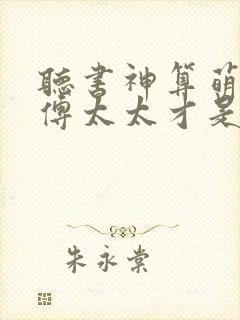 聽書神算萌
傅太太才是
朱永棠